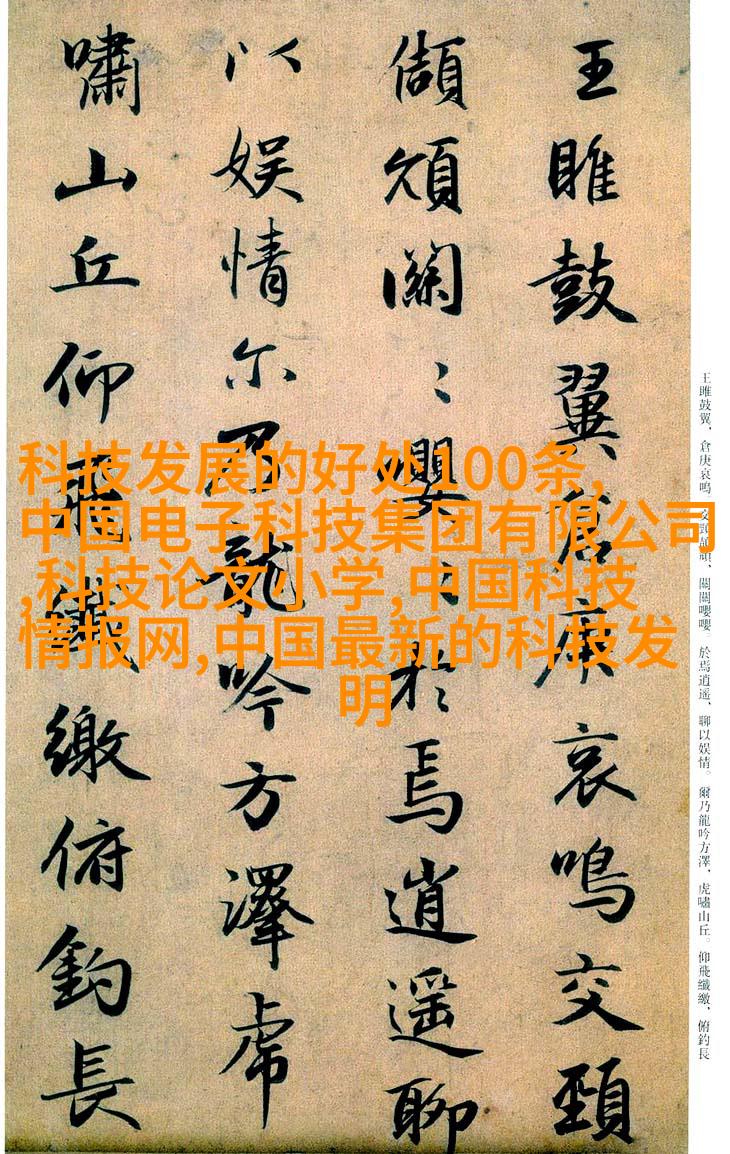 王雎鼓翼倉庚哀鳴交頸
頡頏關〻嚶〻於焉逍遥聊
以娱情尔乃龍吟方澤虎
嘯山丘仰飛纖繳俯釣長
王雎鼓翼，倉庚哀鳴。交頸頡頏，關關嚶嚶。於焉逍遥，聊以娱情。爾乃龍吟方澤，虎嘯山丘。仰飛纖繳，俯釣長
科技发展的好处100条,
中国电子科技集团有限公司
,科技论文小学,中国科技
情报网,中国最新的科技发
明